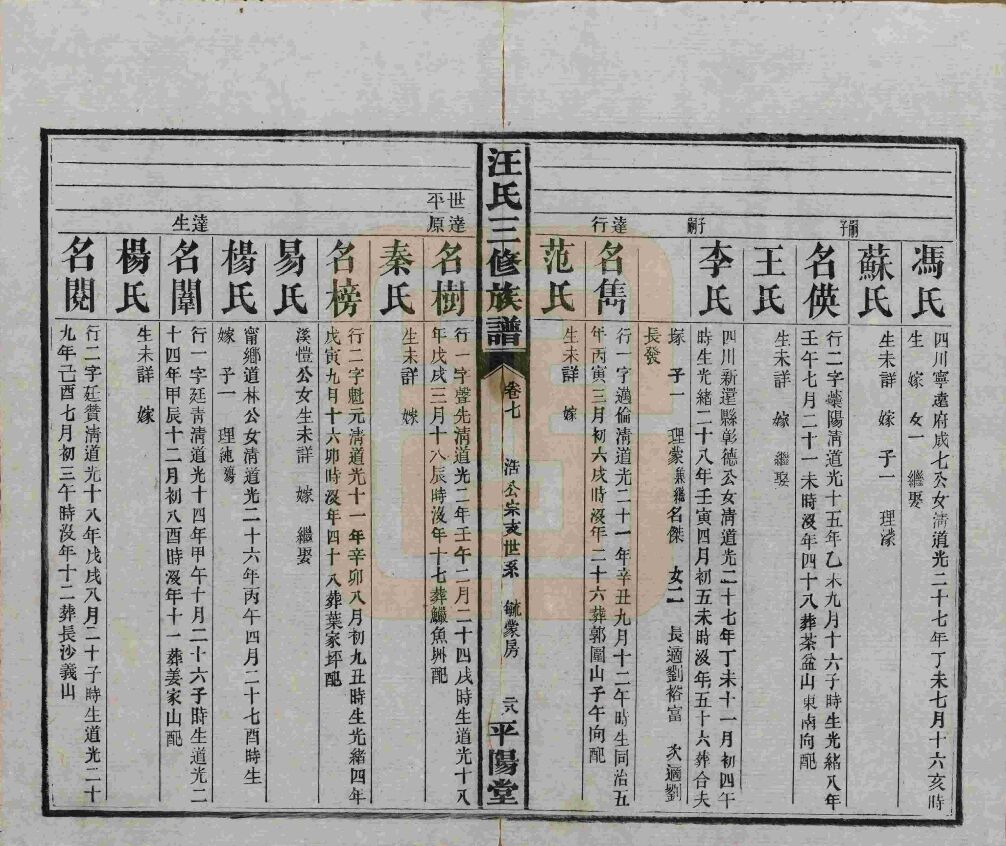 馮氏
四川寧遠府成七公女清道光二十七年丁未七月十六亥時
生 嫁 女一 繼娶
蘇氏
生未詳 嫁 子一 理濛
嗣子
名偀
行二字蘂陽清道光十五年乙未九月十六子時生光緒八年
壬午七月二十一未時沒年四十八葬茶盆山東南向配
王氏
生未詳 嫁 繼娶
李氏
四川新還縣彰德公女清道光二十七年丁未十一月初四午
時生光緒二十八年壬寅四月初五未時沒年五十六葬合夫
塚 子一 理蒙兼繼名傑 女二 長適劉裕富 次適劉
長發
子嗣
達行
名雋
行一字邁倫清道光二十一年辛丑九月十二午時生同治五
年丙寅三月初六戌時沒年二十六葬郭圍山子午向配
范氏
生未詳 嫁
汪氏三修族譜
卷七
浩公宗支世系 毓蒙房
二八
平陽堂
世平
達原
名樹
行一字聲先清道光二年壬午二月二十四戌時生道光十八
年戊戌三月十八辰時沒年十七葬鱺魚坵配
秦氏
生未詳 嫁
名榜
行二字魁元清道光十一年辛卯八月初九丑時生光緒四年
戊寅九月十六卯時沒年四十八葬葉家坪配
易氏
溪愷公女生未詳 嫁 繼娶
楊氏
甯鄉道林公女清道光二十六年丙午四月二十七酉時生
嫁 子一 理純殤
達生
名闈
行一字廷青清道光十四年甲午十月二十六子時生道光二
十四年甲辰十二月初八酉時沒年十一葬姜家山配
楊氏
生未詳 嫁
名閱
行二字廷贊清道光十八年戊戌八月二十子時生道光二十
九年己酉七月初三午時沒年十二葬長沙義山